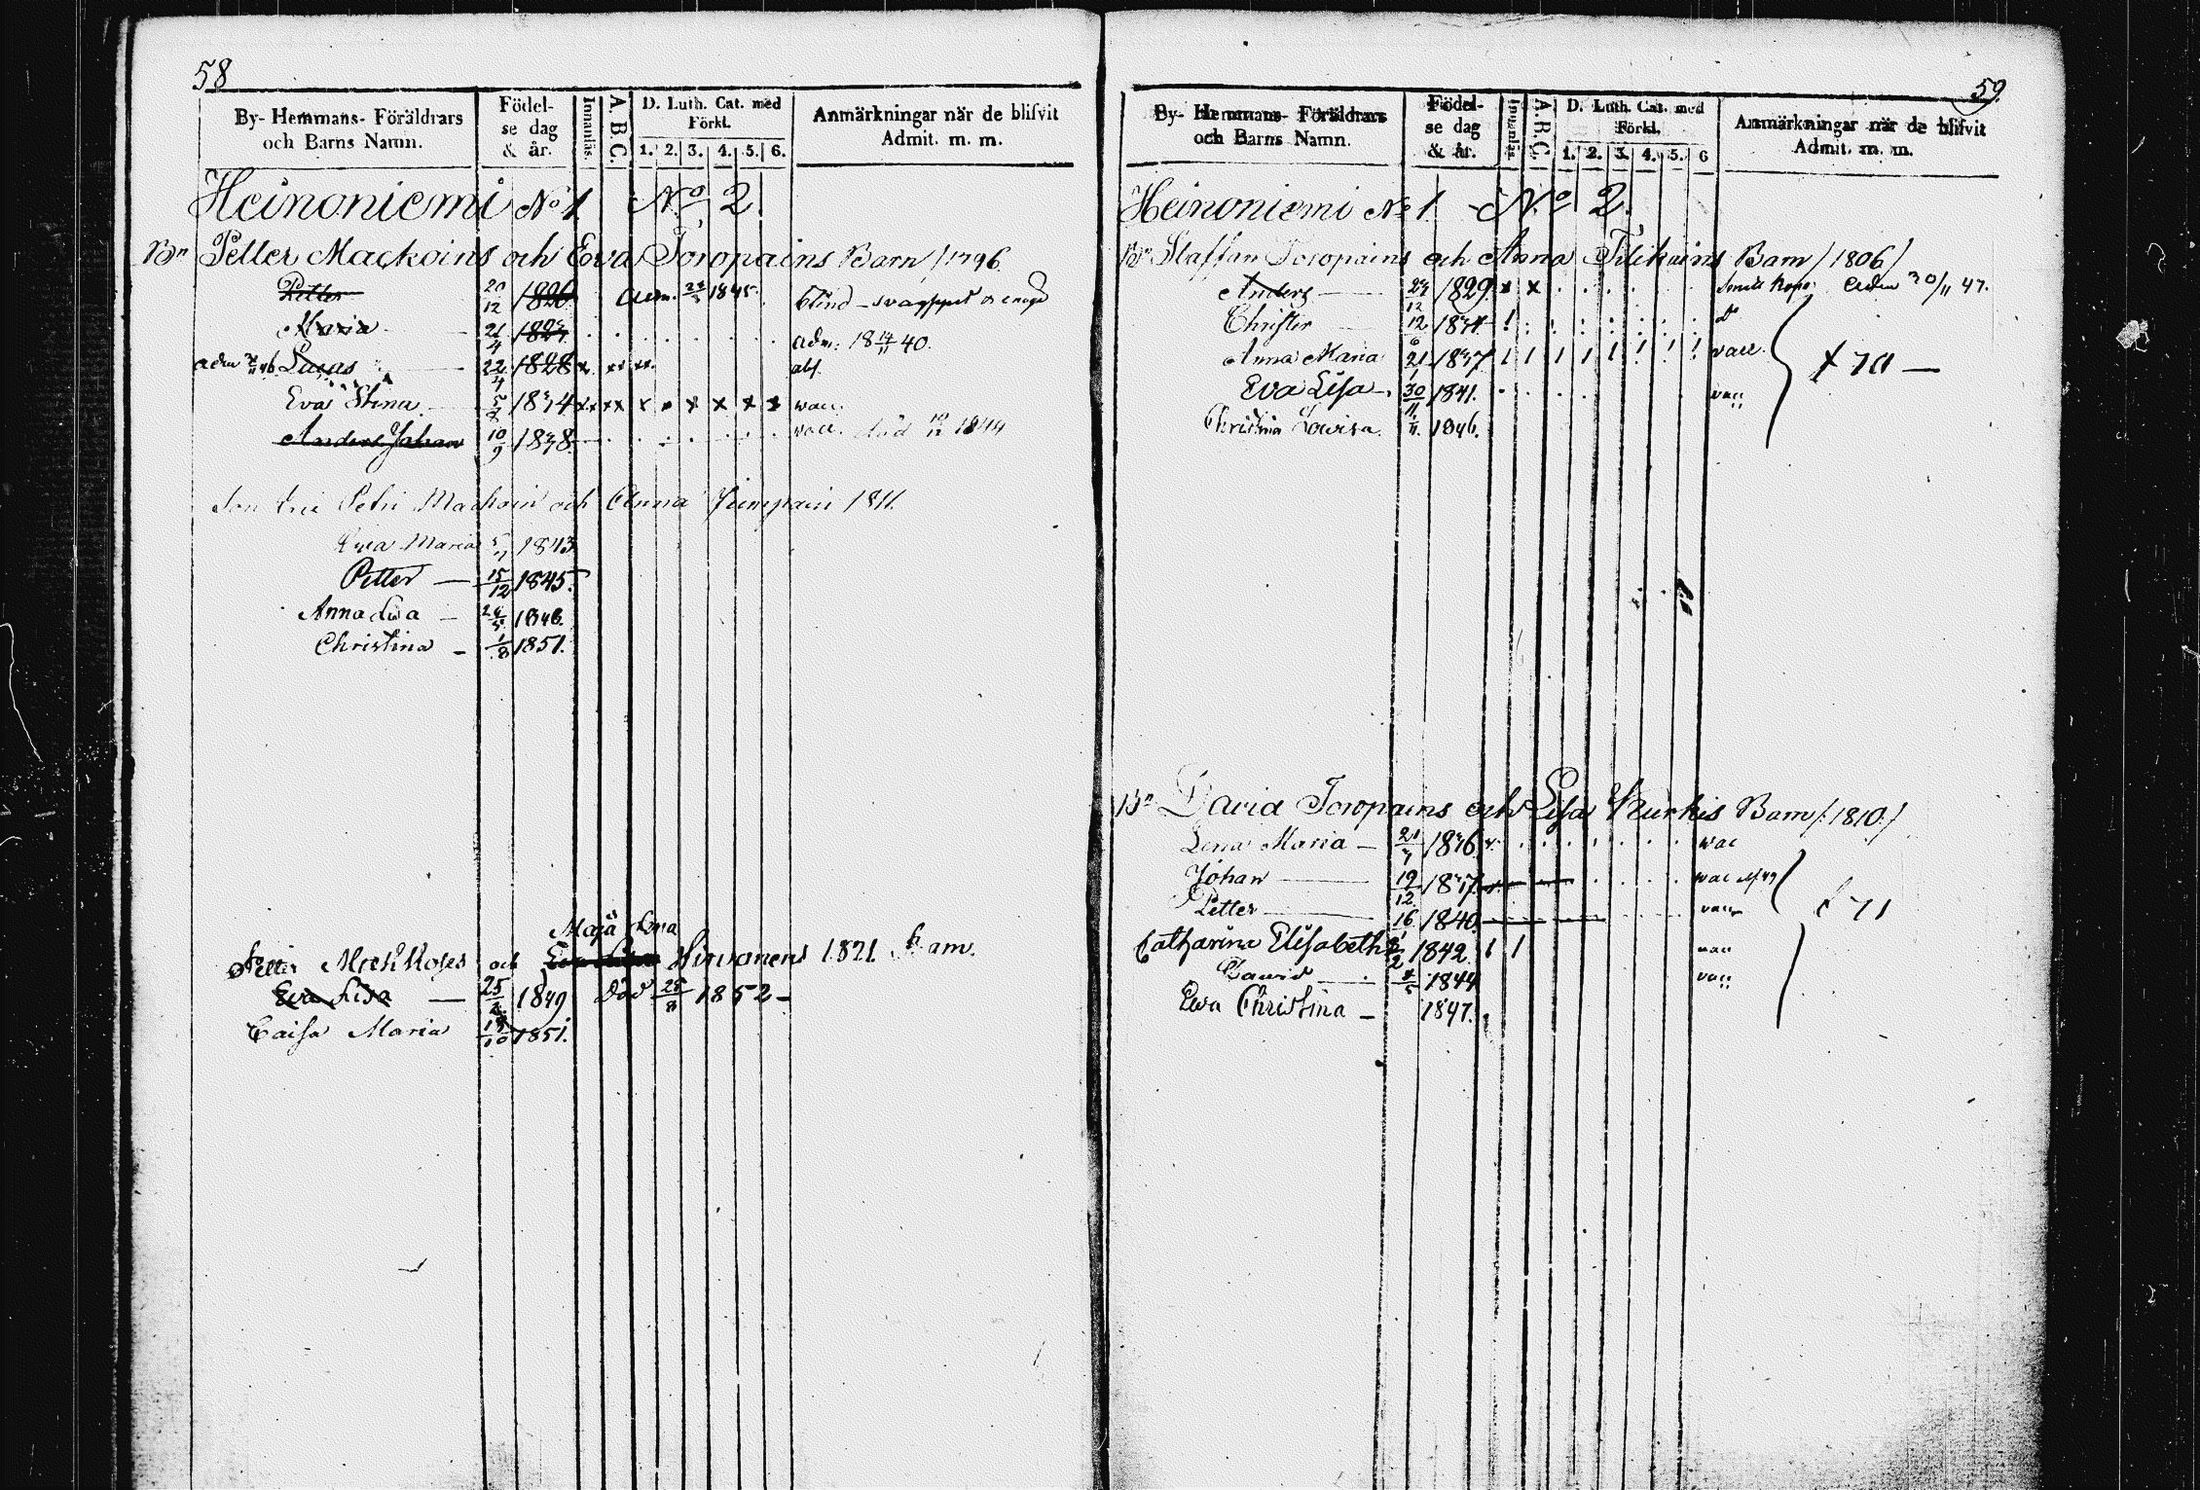 58
By- Hemmans- Föräldrars och Barns Namn.
Födelse dag & år.
Innanläs.
A. B. C.
D. Luth. Cat. med Förkl.
1. 2. 3. 4. 5. 6.
Anmärkningar när de blifvit Admit. m. m.
Heinoniemi No 1 No 2.
Bn Petter Mackoins och Eva Toropains Barn / 1796.
Petter 20/12 1826 adm. 1845. blind
Maria 21/4 adm: 18 14/11 40.
adm Lucas 22/4 1828 x xx xx. abs.
Eva Stina 5/7 1834 xx xx x x x x x wacc.
Anders Johan 10/9 1838 vacc. död 1844
Son Petri Mackoin och Anna 1811.
Eva Maria 1843
Petter — 15/12 1845.
Anna Lisa — 26/5 1848.
Christina — 1/8 1851.
Maja Lena
Petter och Hirvonens 1821. barn.
Eva Lisa — 25/2 1849 död 25/8 1852 —
Caisa Maria 18/10 1851.
59.
By- Hemmans- Föräldrars och Barns Namn.
Födelse dag & år.
Innanläs.
A. B. C.
D. Luth. Cat. med Förkl.
1. 2. 3. 4. 5. 6
Anmärkningar när de blifvit Admit. m. m.
Heinoniemi No 1. No 2.
Bn Staffan Toropains och Anna Tilikains Barn / 1806 /
Anders 29/12 1829 x x adm 30/11 47.
Christer 12/6 1834 do
Anna Maria 21/1 1837 vacc.
Eva Lisa 30/11 1841. vacc
Christina Lovisa 1846.
Bn David Toropains och Lisa Kurkis Barn /: 1810 :/
Lena Maria — 1836 wac
Johan 19/12 1837 wac
Petter 16/1 1840 vacc
Catharina Elisabeth 1842 vacc
David 4/5 1844 vacc
Eva Christina — 1847.